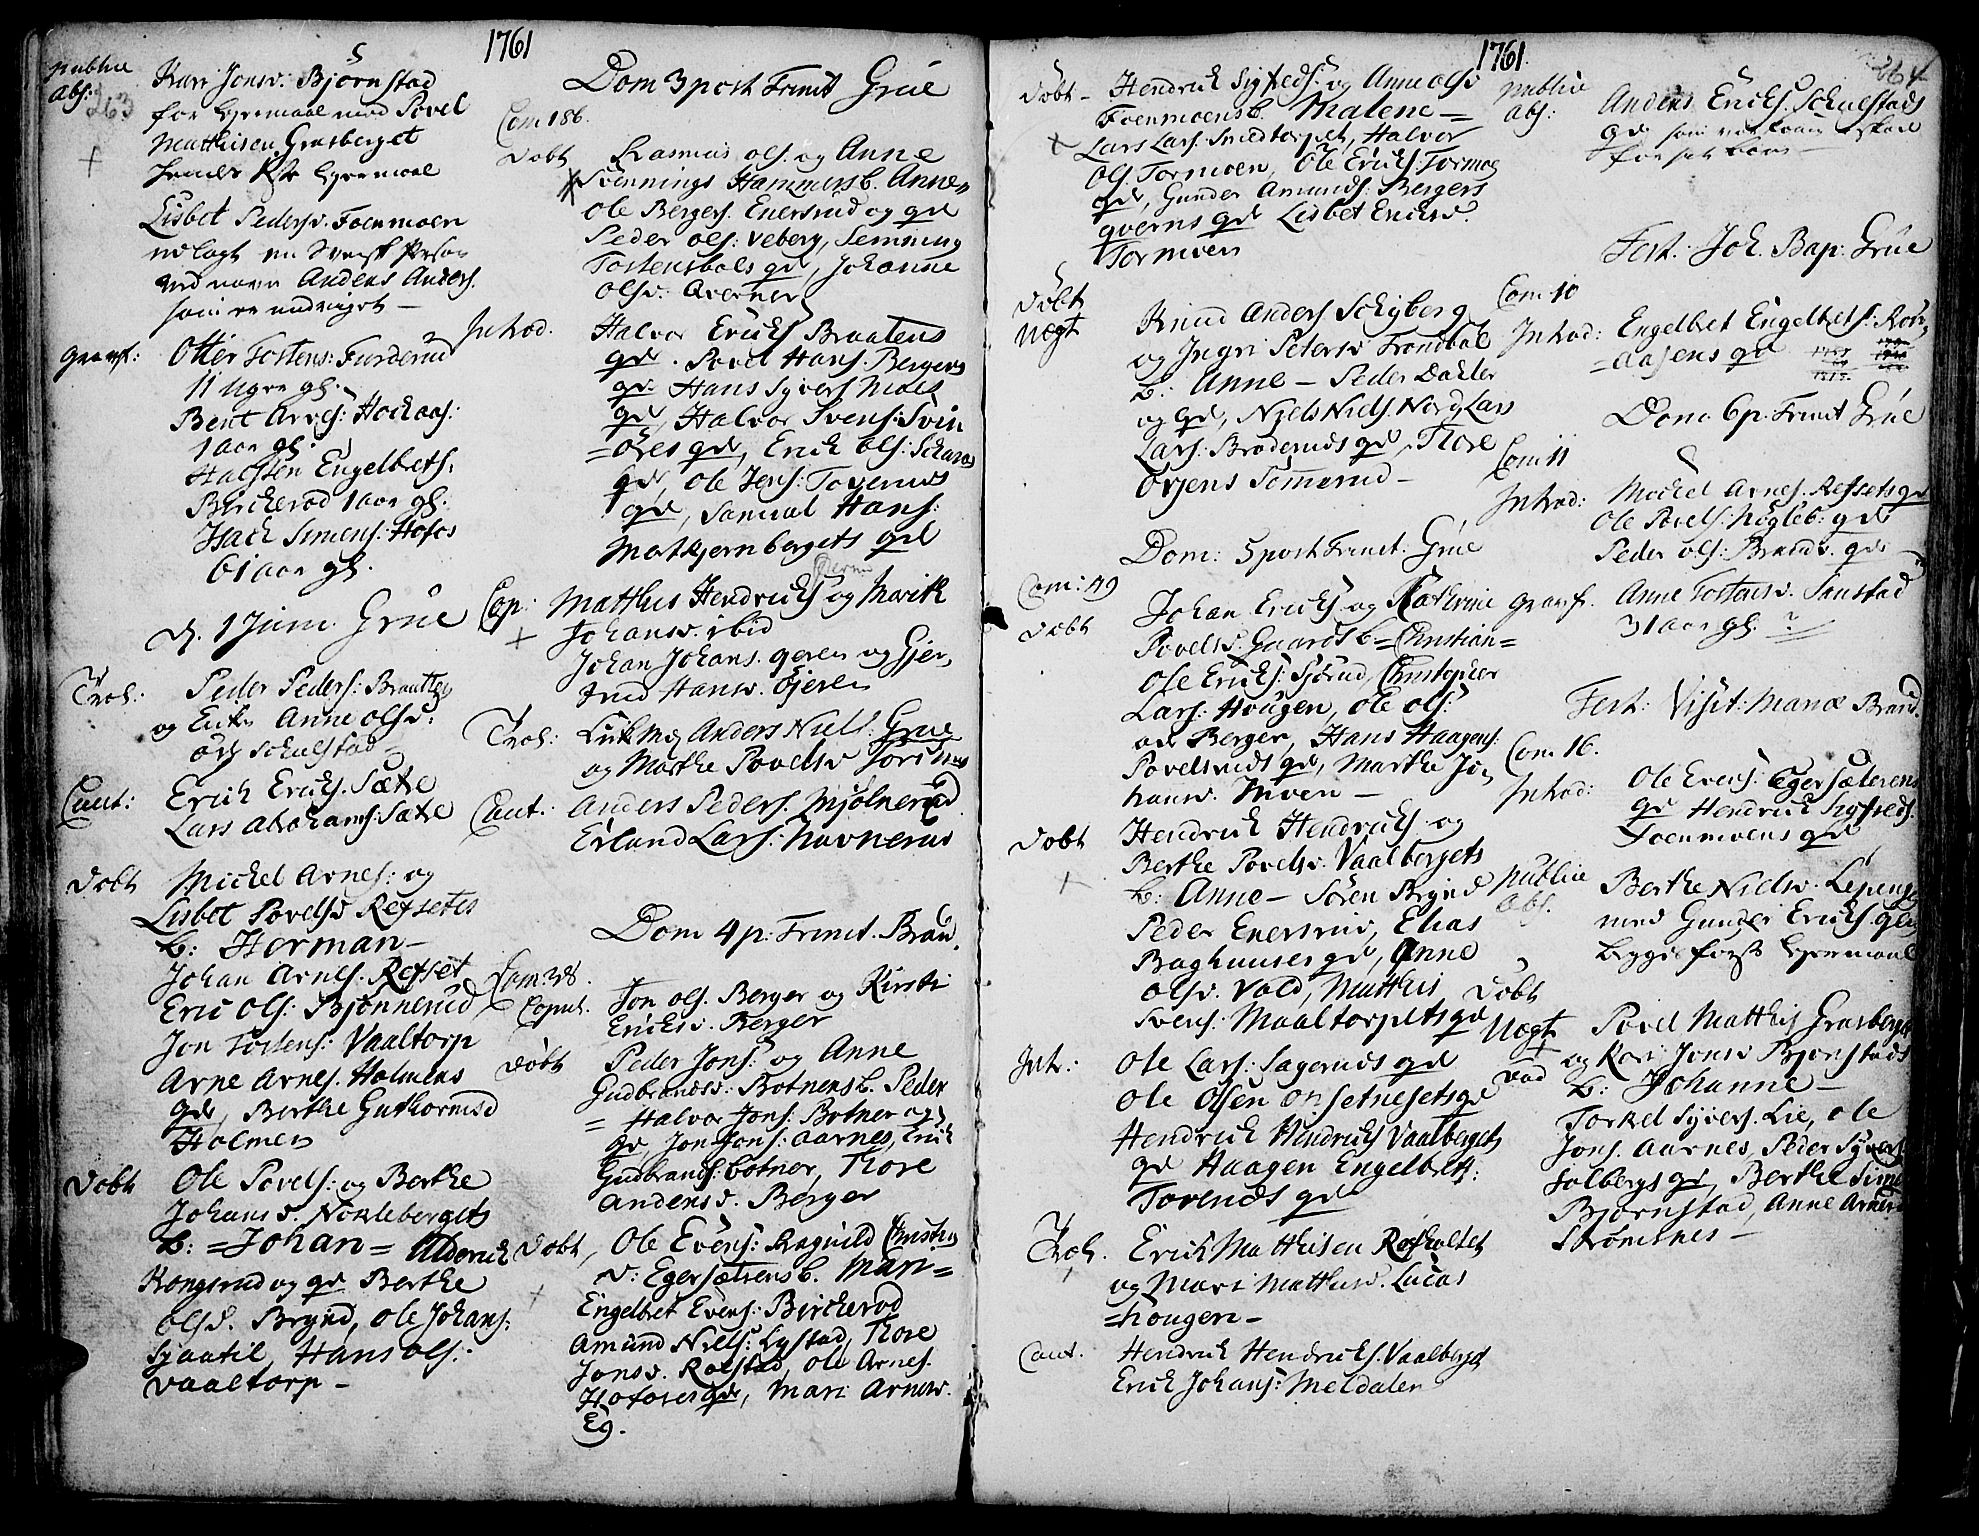 1761
263
publice Kari Jonsd: Bjørnstad
abs: for Lejermaal med Povel
Matthisen Grasberget
Lejermaal
Lisbet Pedersd. Foenmoen
udlagt en Svensk Person
ved navn Anders Anders.
som er undviget —
Gravf: Otter Tostens: Furderud
11 Uger gl.
Bent Arnes: Hockaas:
1 aar gl.
Halsten Engelbrets.
Birckerod 1 aar gl:
Isach Simens: Hofos
61 aar gl.
d. 1 Juni Grue
Trol: Peder Peders: Braatten
og Enke Anne Olsd:
Schulstad
Caut: Erich Erichs. Sæte
Lars Abrahams: Sæte
Døbt Michel Arnes: og
Lisbet Povelsd Refsetes
b: Herman —
Johan Arnes. Refset
Eric Ols: Bjønnerud
Jon Tostens: Vaaltorp
Arne Arnes. Holmens
qv, Berthe Guthormsd
Holmen
Døbt Ole Povels: og Berthe
Johansd. Nokleberget
b: = Johan = Alderich
Kongsrud og qv Berthe
Olsd. Brynd, Ole Johans:
Sjaatil, Hans Ols:
Vaaltorp —
Dom 3 post Trinit Grue
Com 186.
Døbt Rasmus Ols. og Anne
Svennings Hammers b. Anne =
Ole Bergers. Enersrud og qv
Peder Ols: Veberg, Semming
Tostensbøls qv, Johanne
Olsd: Qverner
Introd. Halvor Erichs Braatens
qv. Povel Hans. Bergers
qv. Hans Syvers Moes
qv, Halvor Svens: Svin
= øres qv, Erich Ols: Scharas
qv, Ole Jens: Toverus
qv, Samuel Hans:
Mortkjernbergets qv
Cop: Matthis Hendrichs og Marith
Johansd. ibid
Johan Johans. Geren og Gjer,
trud Hansd. Øjeren
Trol: Anders Niels: Grue
og Marthe Povelsd
Caut: Anders Peders. Mjølnerud
Erland Lars: Navnerud
Dom 4 p: Trinit. Bran.
Com: 38.
Copul. Jon Ols. Berger og Kirsti
Ericksd. Berger
Døbt Peder Jons: og Anne
Gudbrandsd: Botnens b. Peder
= Halvor Jons: Botner og
qv, Jon Jons: Aarnes, Erich
Gudbrands: Botner, Thore
Andersd. Berger
Døbt, Ole Evens: Ragnild Christens
d: Egersætrens b. Mari =
Engelbret Evens: Birckerod
Amund Niels: Lystad, Thore
Jonsd. Rolstad, Ole Arnes.
Hofoses qv, Mari Arnesd.
Eg.
1761.
264
Døbt — Hendrich Sigfreds: og Anne Olsd
Foenmoens b. Malene =
Lars Lars: Smedtorpet, Halvor
Ols. Tormoen, Ole Erichs: Tormoe
qv, Gunder Amunds: Bergers
qverns qv Lisbet Ericksd.
Tormoen
Døbt
Uægt Knud Anders Schyberg
og Ingri Petersd Trondbøl
b: Anne — Peder Dahler
og qv, Niels Niels Nord, Lars
Lars: Broderuds qv, Thore
Ørjens Tommerud —
Dom: 5 post Trinit. Grue
Com: 49
Døbt Johan Erichs og Kathrine
Povelsd. Gaards b = Christian =
Ole Erichs: Sjørud, Christopher
Lars: Hougen, Ole Ols:
Berger, Hans Haagens:
Povelsruds qv, Marthe Jo,
hansd. Moen —
Døbt Hendrich Hendrichs og
Berthe Povelsd. Vaalbergets
b: Anne — Søren Brynd
Peder Enersrud, Elias
Baghuuses qv, Anne
Olsd. Vold, Matthis
Svens: Maaltorpets qv
Int: Ole Lars: Sageruds qv
Ole Olsen Onsetnesets qv
Hendrich Hendrichs Vaalbergets
qv Haagen Engelbrets:
Toveruds qv
Trol. Erich Matthisen Refholtet
og Mari Matthisd. Lucas
= hougen —
Caut. Hendrich Hendrichs. Vaalberget
Erich Johans: Meldalen
publice
abs: Anders Erichs. Schulstads
qv
Fest: Joh. Bap: Grue
Com: 10
Introd: Engelbret Engelbrets: Rot,
= aasens qv
Dom 6 p. Trinit Grue
Com 11
Introd: Michel Arnes. Refsets qv
Ole Povels: Nøgleb: qv
Peder Ols: Brands qv
Gravf. Anne Tostensd. Sanstad
31 aar gl. ?
Fest: Visit: Mariæ Brand.
Com 16.
Introd: Ole Evens: Egersæterens
qv Hendrich Sigfreds.
Foenmoens qv
publice
abs. Berthe Nielsd. Lepeng
med Gunder Erichs.
begges første Lejermaal
Døbt
Uægt Povel Matthis Grasberget
og Kari Jonsd Bjørnstads
b: Johanne —
Torkel Syvers. Lie, Ole
Jons. Aarnes, Peder Syvers
Solbergs qv, Berthe Sime
Bjørnstad, Anne Arnesd
Strømsnes —